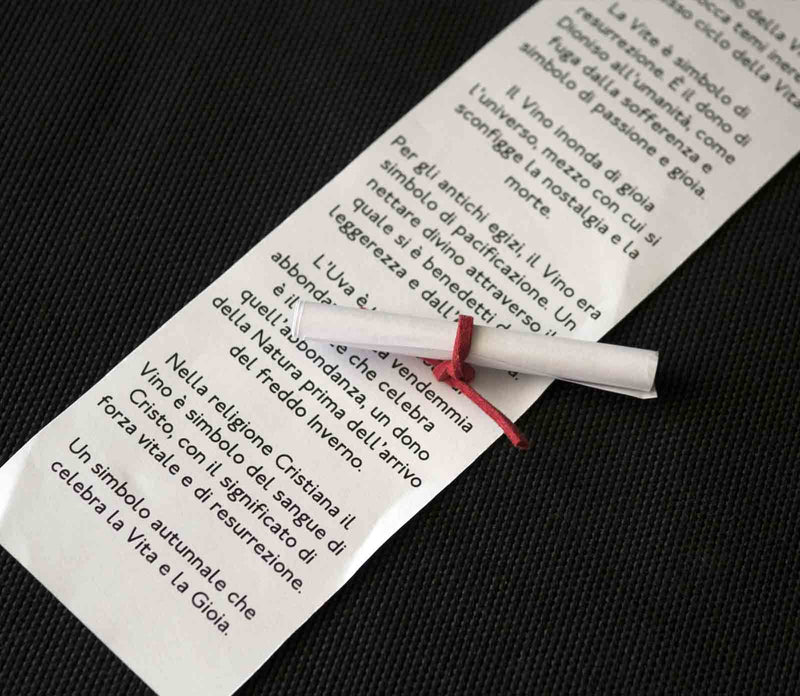 o della V
occa temi inere
sso ciclo della Vita
La Vite è simbolo di
resurrezione. È il dono di
Dioniso all'umanità, come
fuga dalla sofferenza e
simbolo di passione e gioia.
Il Vino inonda di gioia
l'universo, mezzo con cui si
sconfigge la nostalgia e la
morte.
Per gli antichi egizi, il Vino era
simbolo di pacificazione. Un
nettare divino attraverso il
quale si è benedetti
leggerezza e dall'
L'Uva è
abbonda
è il vendemmia
quell'abbondanza che celebra
della Natura prima dell'arrivo
del freddo Inverno.
Nella religione Cristiana il
Vino è simbolo del sangue di
Cristo, con il significato di
forza vitale e di resurrezione.
Un simbolo autunnale che
celebra la Vita e la Gioia.